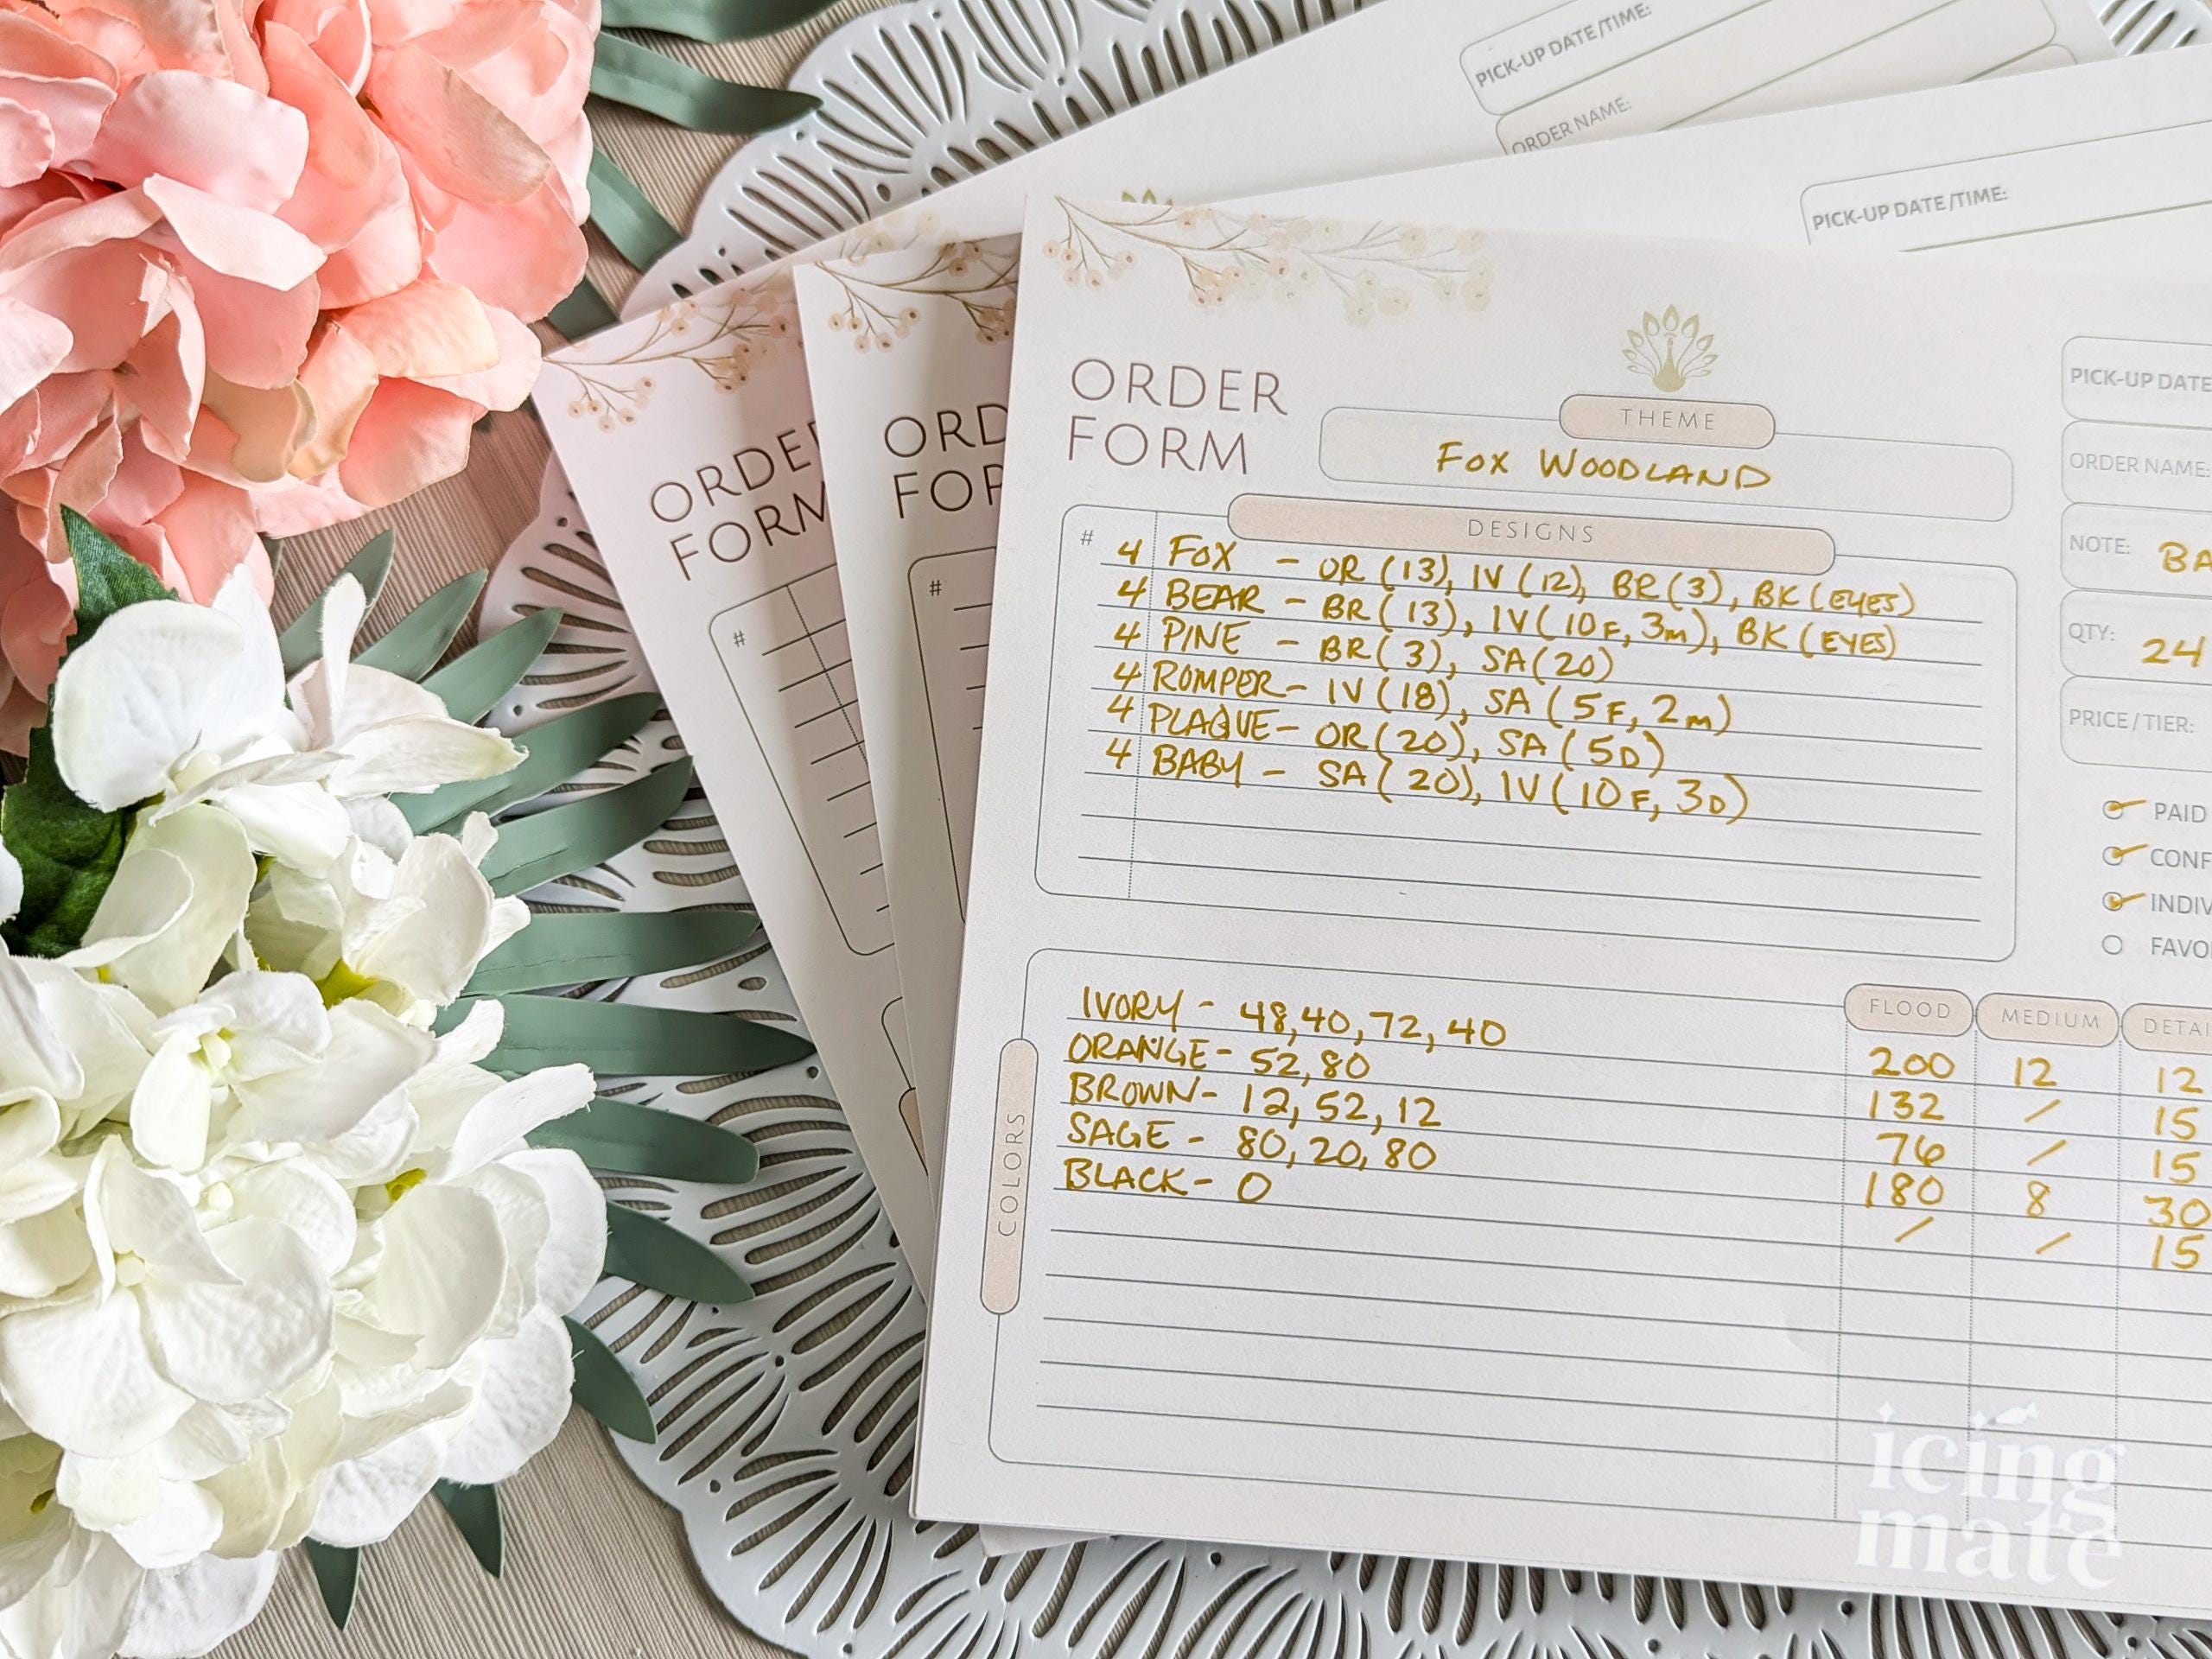 PICK-UP DATE/TIME:
ORDER NAME:
PICK-UP DATE/TIME:
ORDER
FORM
ORD
FOR
ORDER
FORM
THEME
FOX WOODLAND
DESIGNS
#
#
#
4 FOX - OR (13), IV (12), BR (3), BK (EYES)
4 BEAR - BR (13), IV (10F, 3M), BK (EYES)
4 PINE - BR (3), SA (20)
4 ROMPER - IV (18), SA (5F, 2M)
4 PLAQUE - OR (20), SA (5D)
4 BABY - SA (20), IV (10F, 3D)
PICK-UP DATE
ORDER NAME:
NOTE: BA
QTY: 24
PRICE/TIER:
PAID
CONF
INDIV
FAVO
COLORS
FLOOD MEDIUM DETAI
IVORY - 48, 40, 72, 40 200 12 12
ORANGE - 52, 80 132 / 15
BROWN - 12, 52, 12 76 / 15
SAGE - 80, 20, 80 180 8 30
BLACK - 0 / / 15
icing
mate